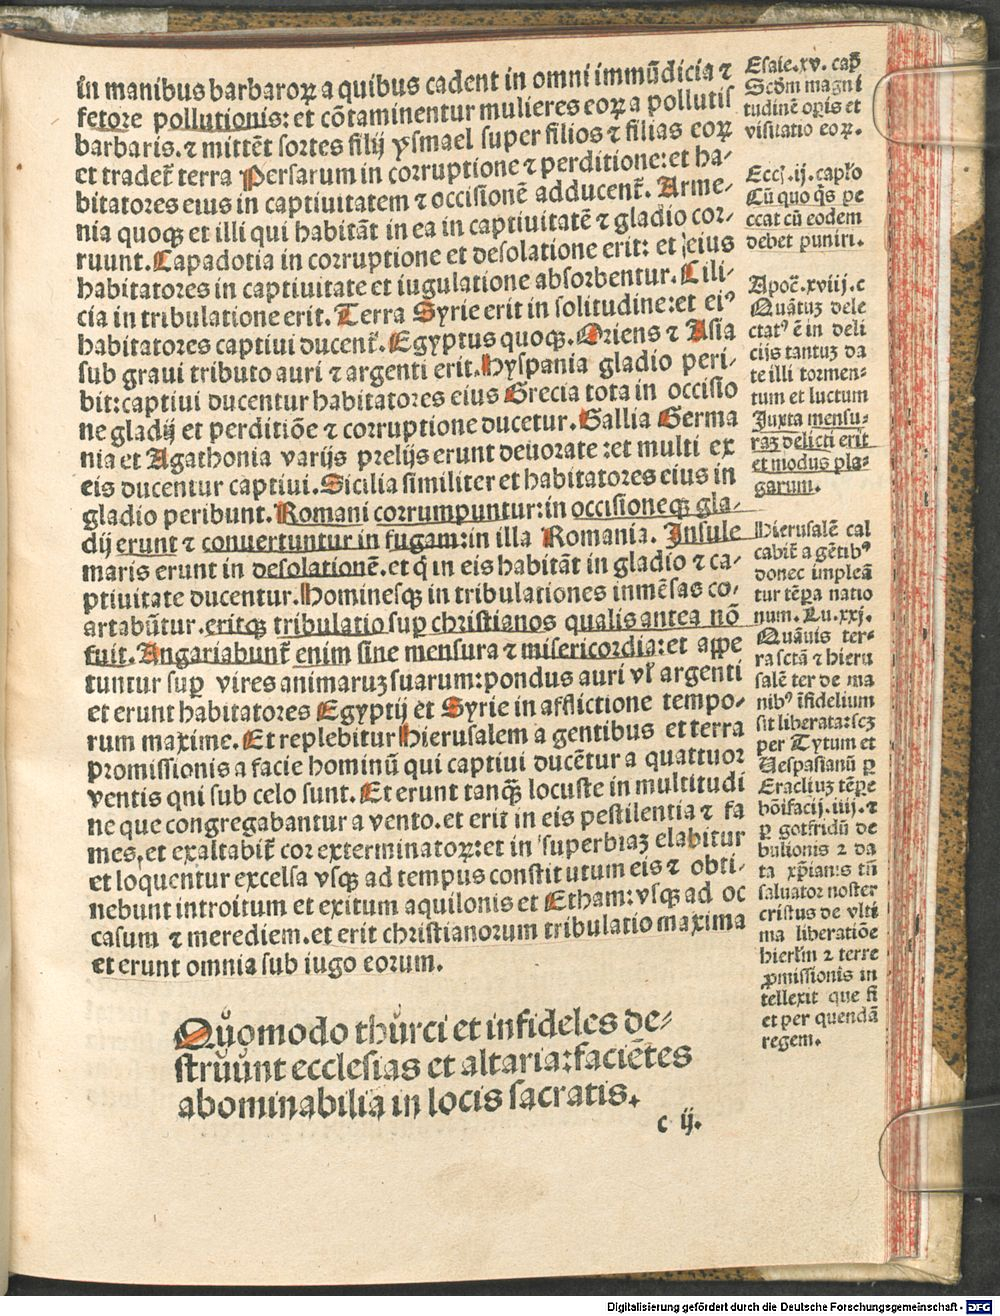 in manibus barbaroꝝ a quibus cadent in omni immūdicia ⁊
fetore pollutionis: et cōtaminentur mulieres eoꝝ a pollutis
barbaris. ⁊ mittēt sortes filij ysmael super filios ⁊ filias eoꝝ
et tradet̄ terra Persarum in corruptione ⁊ perditione: et ha-
bitatores eius in captiuitatem ⁊ occisionē adducent̄. Arme-
nia quoqꝫ et illi qui habitāt in ea in captiuitatē ⁊ gladio cor-
ruunt. Capadotia in corruptione et desolatione erit: et eius
habitatores in captiuitate et iugulatione absorbentur. Cili-
cia in tribulatione erit. Terra Syrie erit in solitudine: et eiꝰ
habitatores captiui ducent̄. Egyptus quoqꝫ. Oriens ⁊ Asia
sub graui tributo auri ⁊ argenti erit. Hyspania gladio peri-
bit: captiui ducentur habitatores eius Grecia tota in occisio
ne gladij et perditiōe ⁊ corruptione ducetur. Gallia Germa
nia et Agathonia varijs prelijs erunt deuorate: et multi ex
eis ducentur captiui. Sicilia similiter et habitatores eius in
gladio peribunt. Romani corrumpuntur: in occisioneqꝫ gla-
dij erunt ⁊ conuertuntur in fugam: in illa Romania. Insule
maris erunt in desolationē. et q̄ in eis habitāt in gladio ⁊ ca-
ptiuitate ducentur. Hominesqꝫ in tribulationes inmēsas co-
artabūtur. eritqꝫ tribulatio suꝑ christianos qualis antea nō
fuit. Angariabunt̄ enim sine mensura ⁊ misericordia: et appe
tuntur suꝑ vires animaruꝫ suarum: pondus auri vl̄ argenti
et erunt habitatores Egyptij et Syrie in afflictione tempo-
rum maxime. Et replebitur Hierusalem a gentibus et terra
promissionis a facie hominū qui captiui ducētur a quattuor
ventis qni sub celo sunt. Et erunt tanqꝫ̄ locuste in multitudi
ne que congregabantur a vento. et erit in eis pestilentia ⁊ fa
mes, et exaltabit̄ cor exterminatoꝝ: et in superbiaꝫ elabitur
et loquentur excelsa vsqꝫ ad tempus constitutum eis ⁊ obti-
nebunt introitum et exitum aquilonis et Etham: vsqꝫ ad oc
casum ⁊ merediem. et erit christianorum tribulatio maxima
et erunt omnia sub iugo eorum.
Quomodo thurci et infideles de-
struunt ecclesias et altaria: faciētes
abominabilia in locis sacratis.
c ij.
Esaie. xv. cap̄
Scd̄m magni
tudinē oꝑis et
visitatio eoꝝ.
Eccl̄. ij. capl̄o
Cū quo q̄s pe
ccat cū eodem
debet puniri.
Apoc̄. xviij. c
Quātuꝫ dele
ctatꝰ ē in deli
cijs tantuꝫ da
te illi tormen-
tum et luctum
Juxta mensu-
raꝫ delicti erit
et modus pla-
garum.
Hierusalē cal
cabit̄ a gētibꝰ
donec impleā
tur tēꝑa natio
num. Lu. xxj.
Quāuis ter-
ra sct̄a ⁊ hieru
salē ter de ma
nibꝰ īfidelium
sit liberata: scꝫ
per Tytum et
Vespasianū ꝑ
Eracliuꝫ tēꝑe
bōifacij. iiij. ⁊
ꝑ gotfridū de
bulionis ⁊ da
ta xp̄ianis tn̄
saluator noster
cristus de vlti
ma liberatiōe
hierl̄m ⁊ terre
ꝓmissionis in
tellexit que fi
et per quendā
regem.
Digitalisierung gefördert durch die Deutsche Forschungsgemeinschaft - DFG